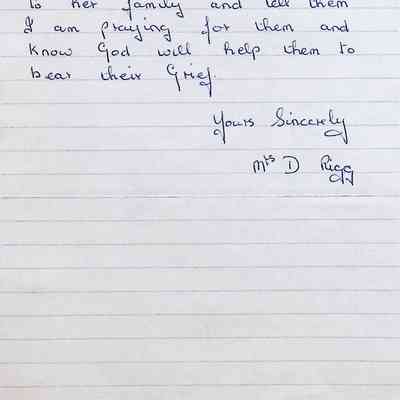 to her family and tell them
I am praying for them and
know God will help them to
bear their Grief.
Yours Sincerely
Mrs D Rigg